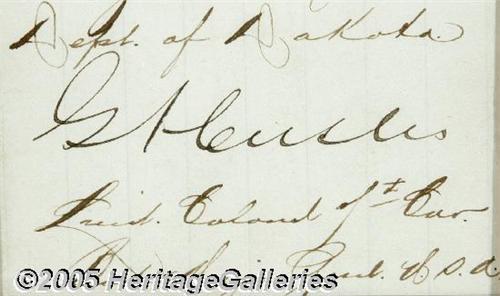 Dept. of Dakota.
G A Custer
Lieut. Colonel 7th Cav.
Bvt Maj. Genl. U.S.A.
©2005 HeritageGalleries